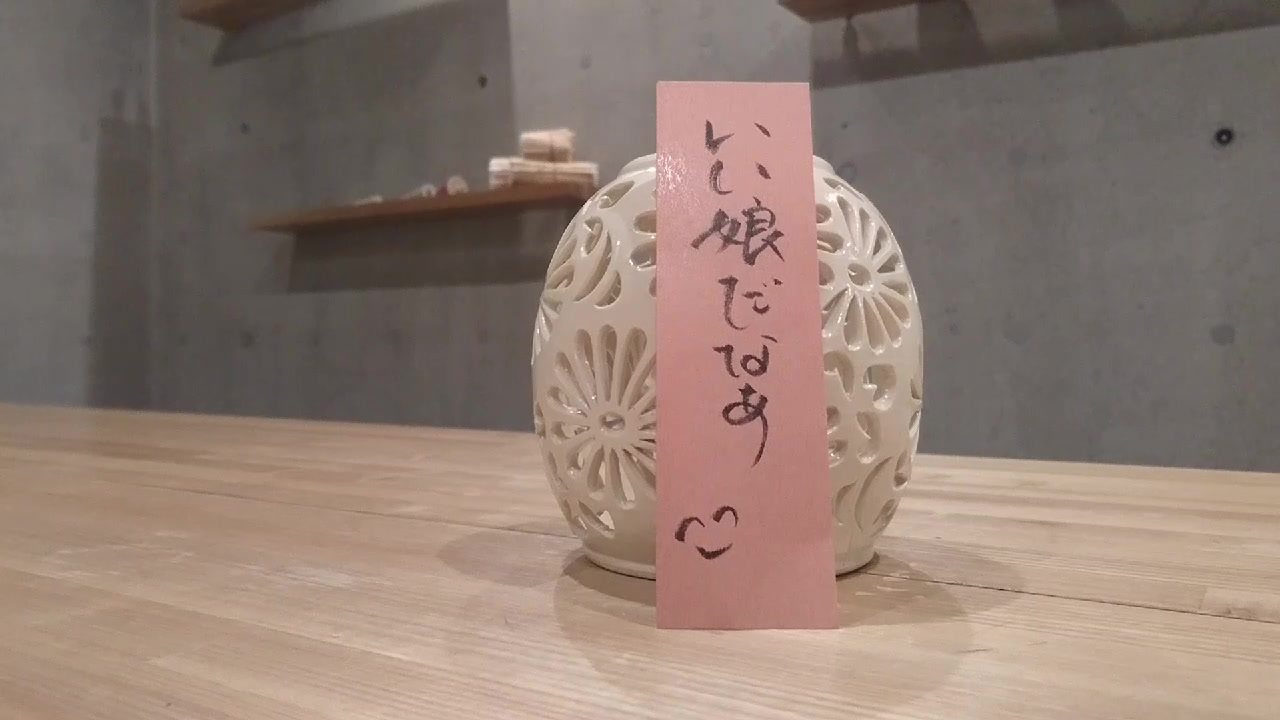 いい娘だなあ